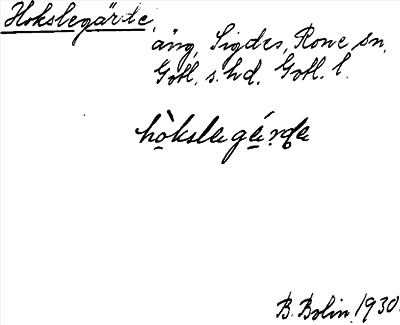 Hokslegärde,
äng, Sigdes, Rone sn,
Gotl. s. hd. Gotl. l.
hò̱kslegé̱rde
B. Bolin 1930.